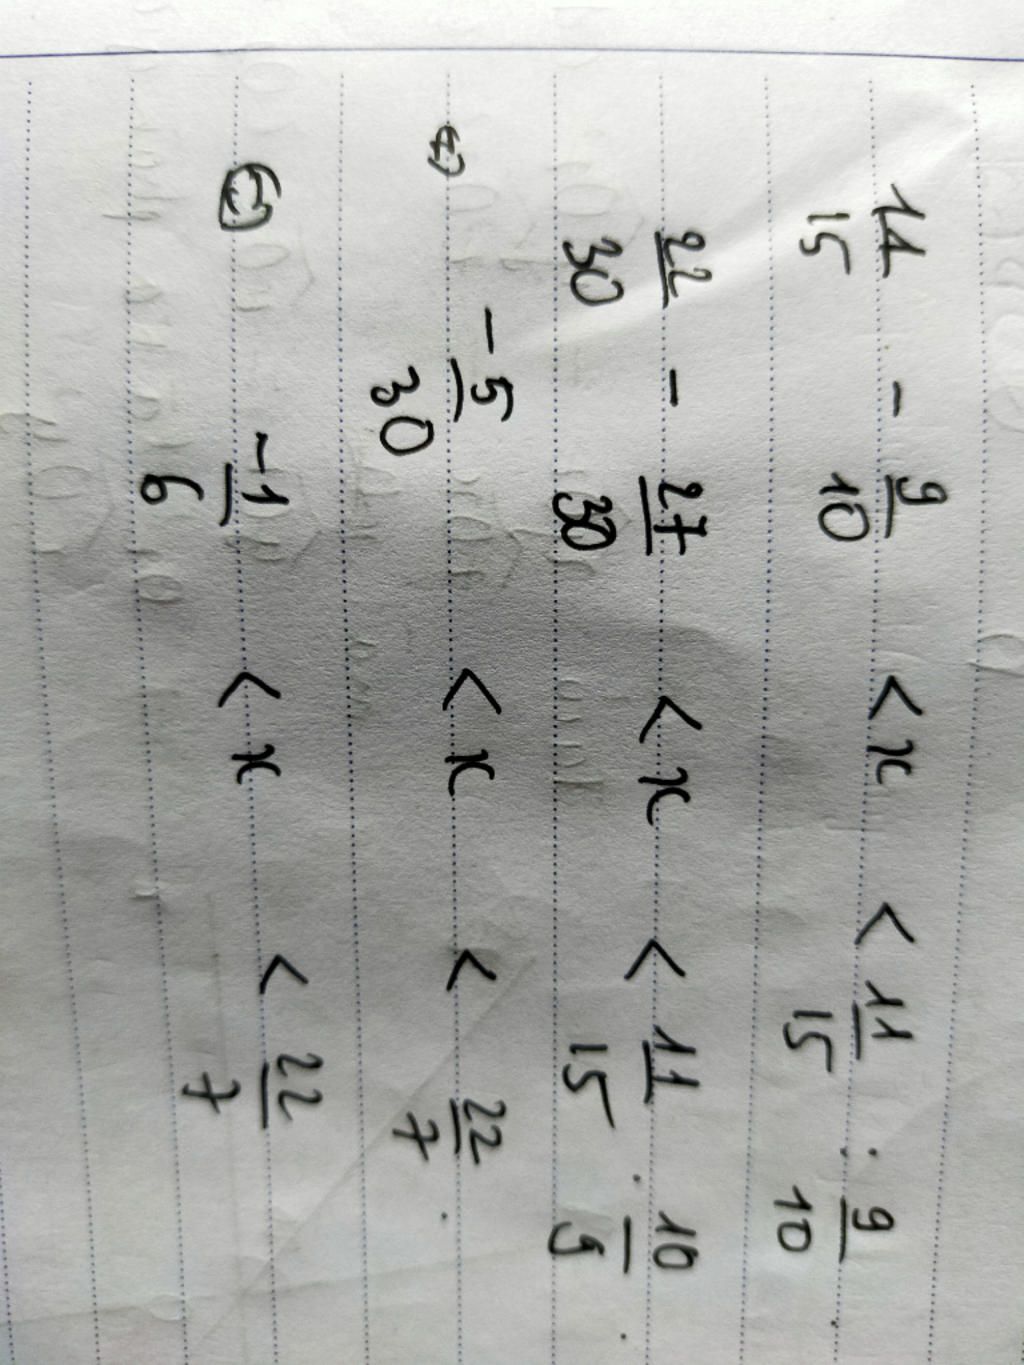 11/15 - 9/10 < x < 11/15 : 9/10
22/30 - 27/30 < x < 11/15 · 10/9
-5/30 < x < 22/7
-1/6 < x < 22/7